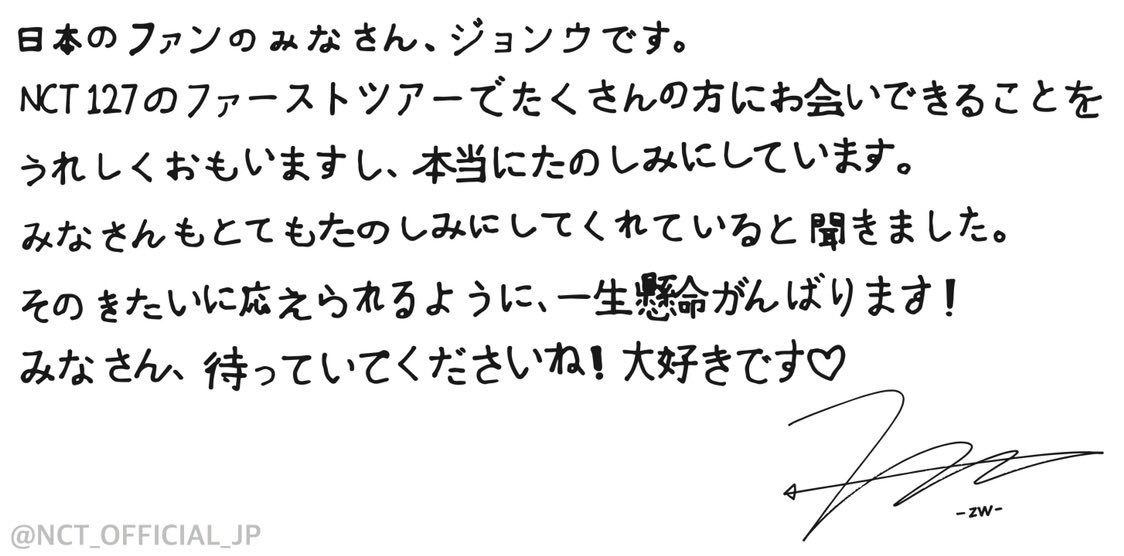 日本のファンのみなさん、ジョンウです。
NCT 127のファーストツアーでたくさんの方にお会いできることを
うれしくおもいますし、本当にたのしみにしています。
みなさんもとてもたのしみにしてくれていると聞きました。
そのきたいに応えられるように、一生懸命がんばります!
みなさん、待っていてくださいね!大好きです♡
-ZW-
@NCT_OFFICIAL_JP